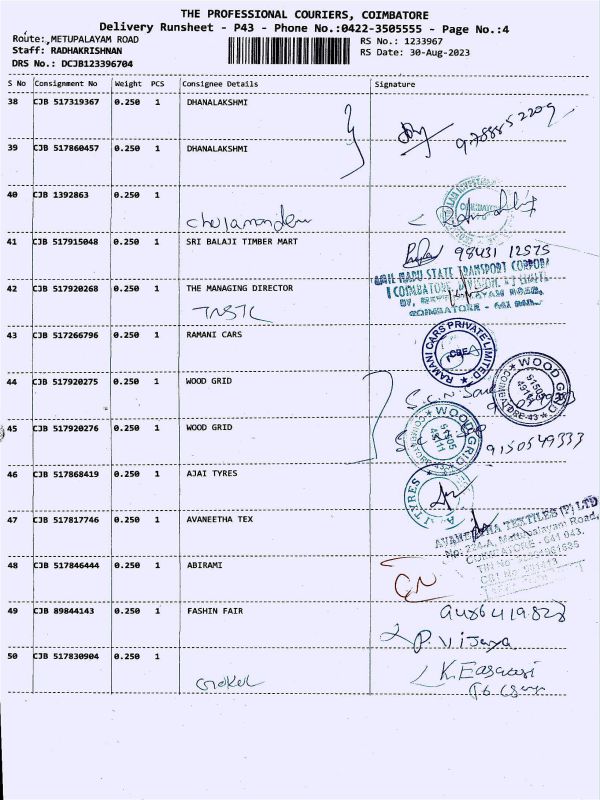 THE PROFESSIONAL COURIERS, COIMBATORE
Delivery Runsheet - P43 - Phone No.:0422-3505555 - Page No.:4
Route: METUPALAYAM ROAD RS No.: 1233967
Staff: RADHAKRISHNAN RS Date: 30-Aug-2023
DRS No.: DCJB123396704
S No Consignment No Weight PCS Consignee Details Signature
38 CJB 517319367 0.250 1 DHANALAKSHMI
39 CJB 517860457 0.250 1 DHANALAKSHMI
40 CJB 1392863 0.250 1
41 CJB 517915048 0.250 1 SRI BALAJI TIMBER MART
98431 12575
42 CJB 517920268 0.250 1 THE MANAGING DIRECTOR
STATE TRANSPORT
TNSTC
COIMBATORE
43 CJB 517266796 0.250 1 RAMANI CARS
RAMANI CARS PRIVATE LIMITED
CBE
44 CJB 517920275 0.250 1 WOOD GRID
WOOD GRID
COIMBATORE-43
45 CJB 517920276 0.250 1 WOOD GRID
WOOD GRID
9150549333
46 CJB 517868419 0.250 1 AJAI TYRES
TYRES
47 CJB 517817746 0.250 1 AVANEETHA TEX
TEXTILES (P) LTD
Metupalayam Road,
COIMBATORE - 641 043.
48 CJB 517846444 0.250 1 ABIRAMI
49 CJB 89844143 0.250 1 FASHIN FAIR
P. Vijaya
50 CJB 517830904 0.250 1
Gokul
K. Easwari